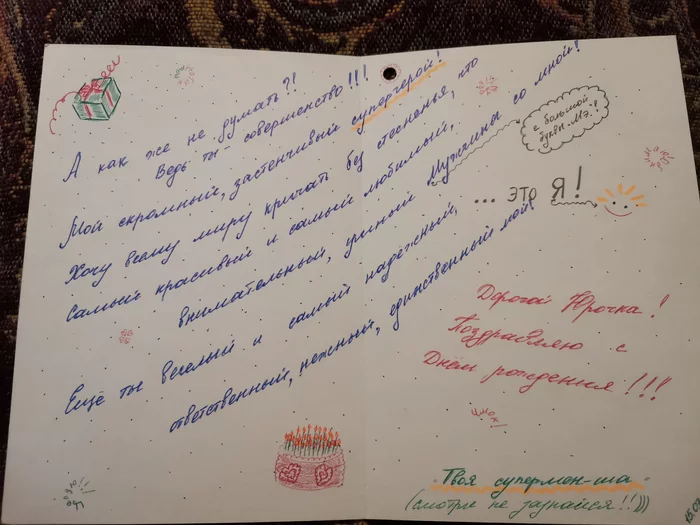 А как же не думать?!
Ведь ты - совершенство!!!
Мой скромный, застенчивый супергерой!
Хочу всему миру кричать без стесненья, кто
самый красивый и самый любимый,
внимательный, умный Мужчина со мной!
с большой
буквы „М"
Ещё ты весёлый и самый надёжный,
ответственный, нежный, единственный мой!
... это Я!
Дорогой Юрочка!
Поздравляю с
Днём рождения!!!
чмок!
Твоя супермен-ша
(смотри не зазнайся!!)))